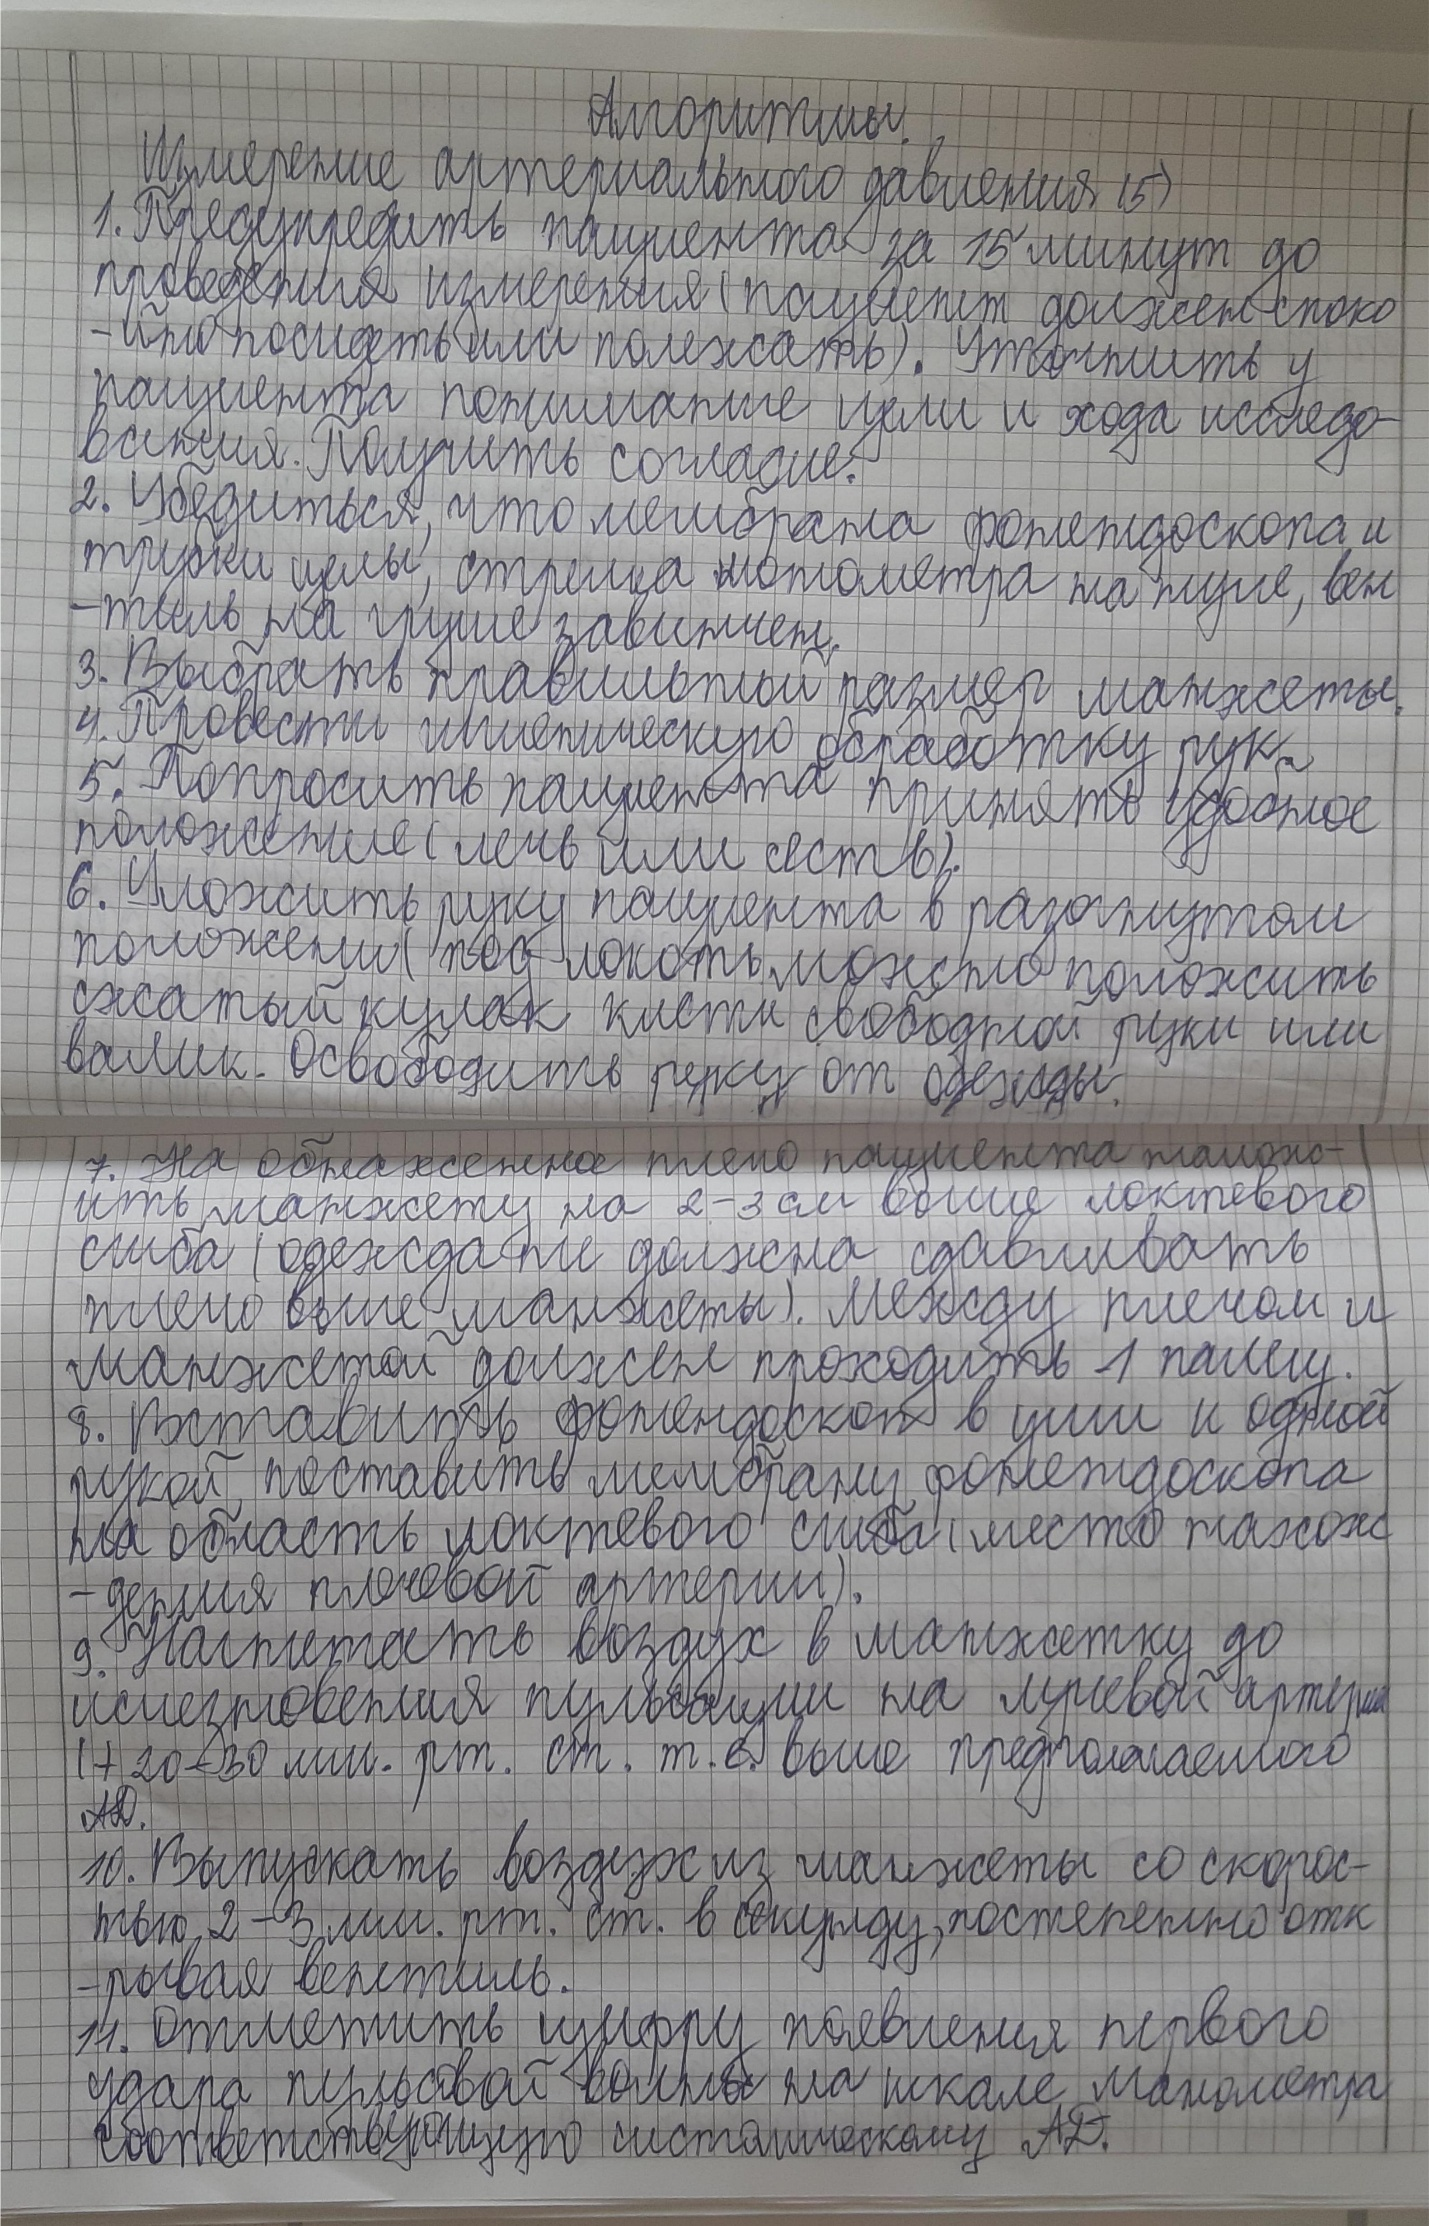 Алгоритмы.
Измерение артериального давления (5)
1. Предупредить пациента за 15 минут до
проведения измерения (пациент должен споко
-йно посидеть или полежать). Уточнить у
пациента понимание цели и хода исследо-
вания. Получить согласие.
2. Убедиться, что мембрана фонендоскопа и
трубки целы, стрелка монометра на нуле, вен
-тиль на груше завинчен.
3. Выбрать правильный размер манжеты.
4. Провести гигиеническую обработку рук.
5. Попросить пациента принять удобное
положение (лечь или сесть).
6. Уложить руку пациента в разогнутом
положении (под локоть можно положить
сжатый кулак кисти свободной руки или
валик. Освободить руку от одежды.
7. На обнаженное плечо пациента налож-
ить манжету на 2-3 см выше локтевого
сгиба (одежда не должна сдавливать
плечо выше манжеты). Между плечом и
манжетой должен проходить 1 палец.
8. Вставить фонендоскоп в уши и одной
рукой поставить мембрану фонендоскопа
на область локтевого сгиба (место нахож
-дения плечевой артерии).
9. Нагнетать воздух в манжетку до
исчезновения пульсации на лучевой артерии
(+20-30 мм. рт. ст. т.е. выше предполагаемого
АД.
10. Выпускать воздух из манжеты со скорос-
тью 2-3 мм. рт. ст. в секунду, постепенно отк
-рывая вентиль.
11. Отметить цифру появления первого
удара пульсовой волны на шкале манометра
соответствующую систолическому АД.